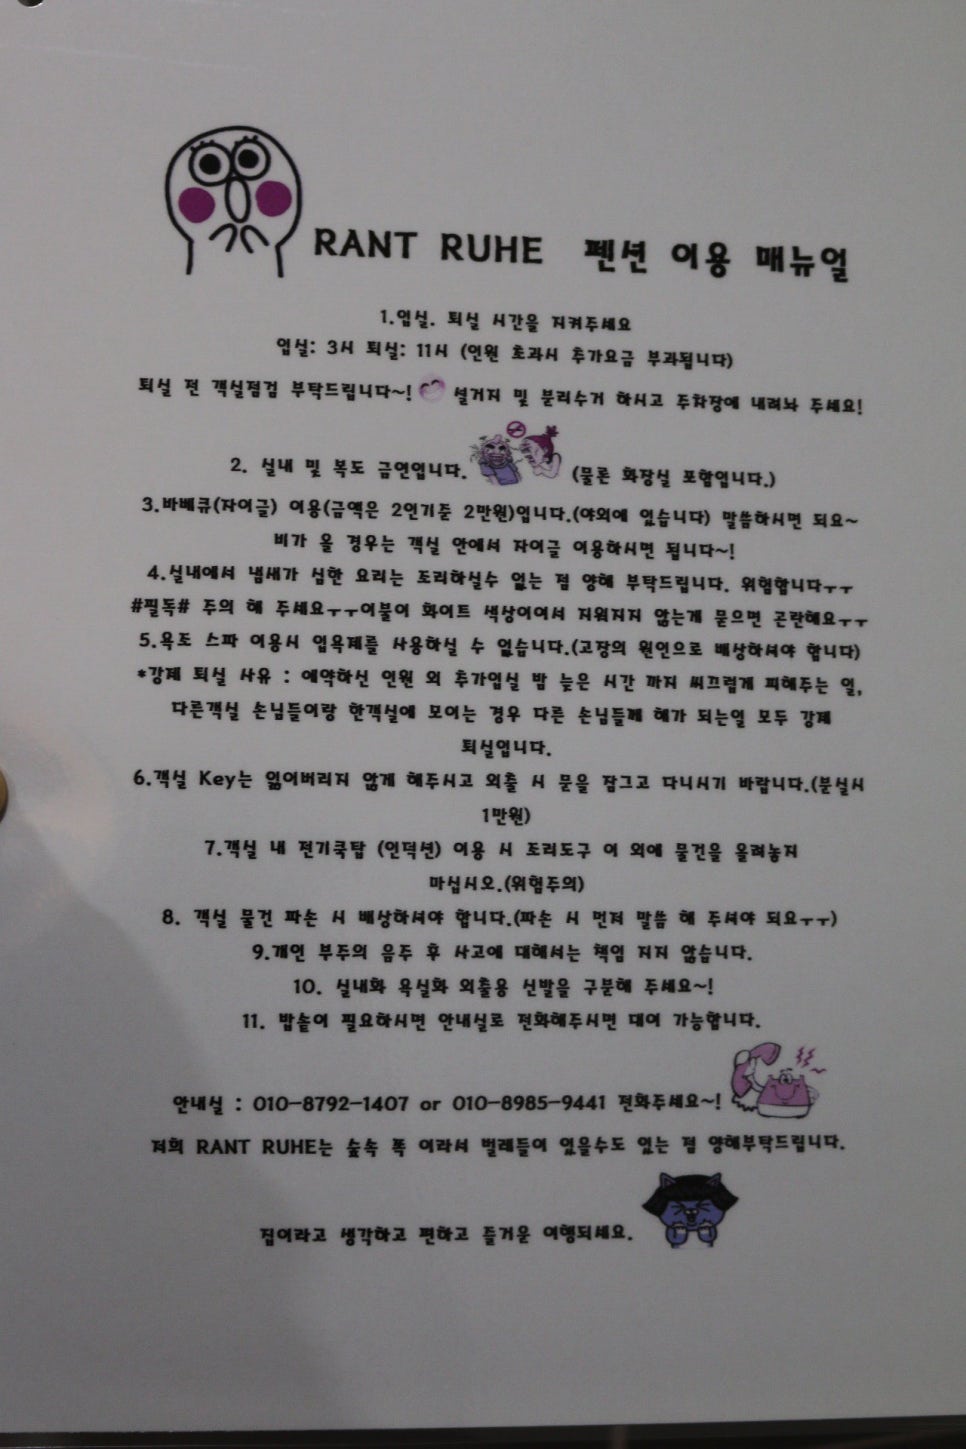 RANT RUHE 펜션 이용 매뉴얼
1.입실. 퇴실 시간을 지켜주세요
입실: 3시 퇴실: 11시 (인원 초과시 추가요금 부과됩니다)
퇴실 전 객실점검 부탁드립니다~! 설거지 및 분리수거 하시고 주차장에 내려놔 주세요!
2. 실내 및 복도 금연입니다. (물론 화장실 포함입니다.)
3.바베큐(자이글) 이용(금액은 2인기준 2만원)입니다.(야외에 있습니다) 말씀하시면 되요~
비가 올 경우는 객실 안에서 자이글 이용하시면 됩니다~!
4.실내에서 냄새가 심한 요리는 조리하실수 없는 점 양해 부탁드립니다. 위험합니다ㅜㅜ
#필독# 주의 해 주세요ㅜㅜ이불이 화이트 색상이여서 지워지지 않는게 묻으면 곤란해요ㅜㅜ
5.욕조 스파 이용시 입욕제를 사용하실 수 없습니다.(고장의 원인으로 배상하셔야 합니다)
*강제 퇴실 사유 : 예약하신 인원 외 추가입실 밤 늦은 시간 까지 씨끄럽게 피해주는 일,
다른객실 손님들이랑 한객실에 모이는 경우 다른 손님들께 해가 되는일 모두 강제
퇴실입니다.
6.객실 Key는 잃어버리지 않게 해주시고 외출 시 문을 잠그고 다니시기 바랍니다.(분실시
1만원)
7.객실 내 전기쿡탑 (인덕션) 이용 시 조리도구 이 외에 물건을 올려놓지
마십시오.(위험주의)
8. 객실 물건 파손 시 배상하셔야 합니다.(파손 시 먼저 말씀 해 주셔야 되요ㅜㅜ)
9.개인 부주의 음주 후 사고에 대해서는 책임 지지 않습니다.
10. 실내화 욕실화 외출용 신발을 구분해 주세요~!
11. 밥솥이 필요하시면 안내실로 전화해주시면 대여 가능합니다.
안내실 : 010-8792-1407 or 010-8985-9441 전화주세요~!
저희 RANT RUHE는 숲속 쪽 이라서 벌레들이 있을수도 있는 점 양해부탁드립니다.
집이라고 생각하고 편하고 즐거운 여행되세요.